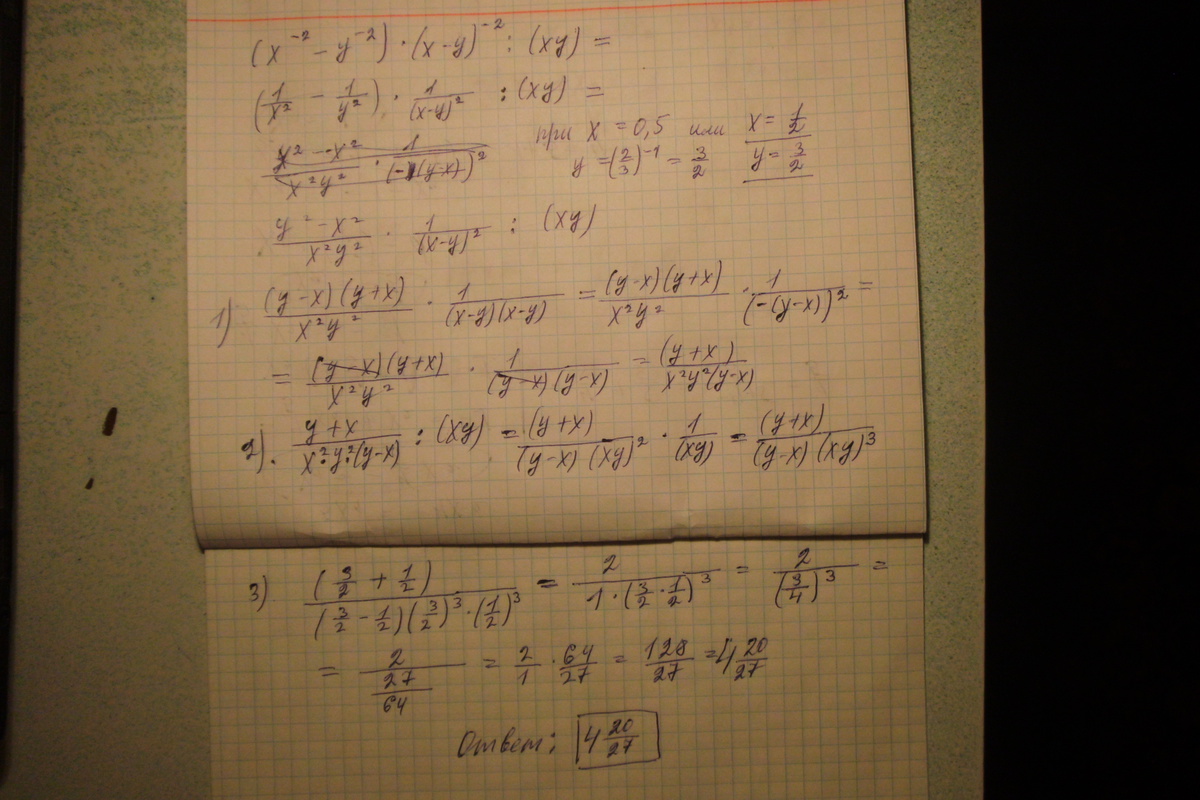 (x⁻² − y⁻²) · (x−y)⁻² : (xy) =
(1/x² − 1/y²) · 1/(x−y)² : (xy) =
при x = 0,5 или x = 1/2
y = (2/3)⁻¹ = 3/2 y = 3/2
(y² − x²)/(x²y²) · 1/(x−y)² : (xy)
1) (y−x)(y+x)/(x²y²) · 1/((x−y)(x−y)) = (y−x)(y+x)/(x²y²) · 1/(−(y−x))² =
= (y−x)(y+x)/(x²y²) · 1/((y−x)(y−x)) = (y+x)/(x²y²(y−x))
2). (y+x)/(x²·y²·(y−x)) : (xy) = (y+x)/((y−x)(xy)²) · 1/(xy) = (y+x)/((y−x)(xy)³)
3) (3/2 + 1/2)/((3/2 − 1/2)(3/2)³·(1/2)³) = 2/(1·(3/2·1/2)³) = 2/(3/4)³ =
= 2/(27/64) = 2/1 · 64/27 = 128/27 = 4 20/27
Ответ: 4 20/27